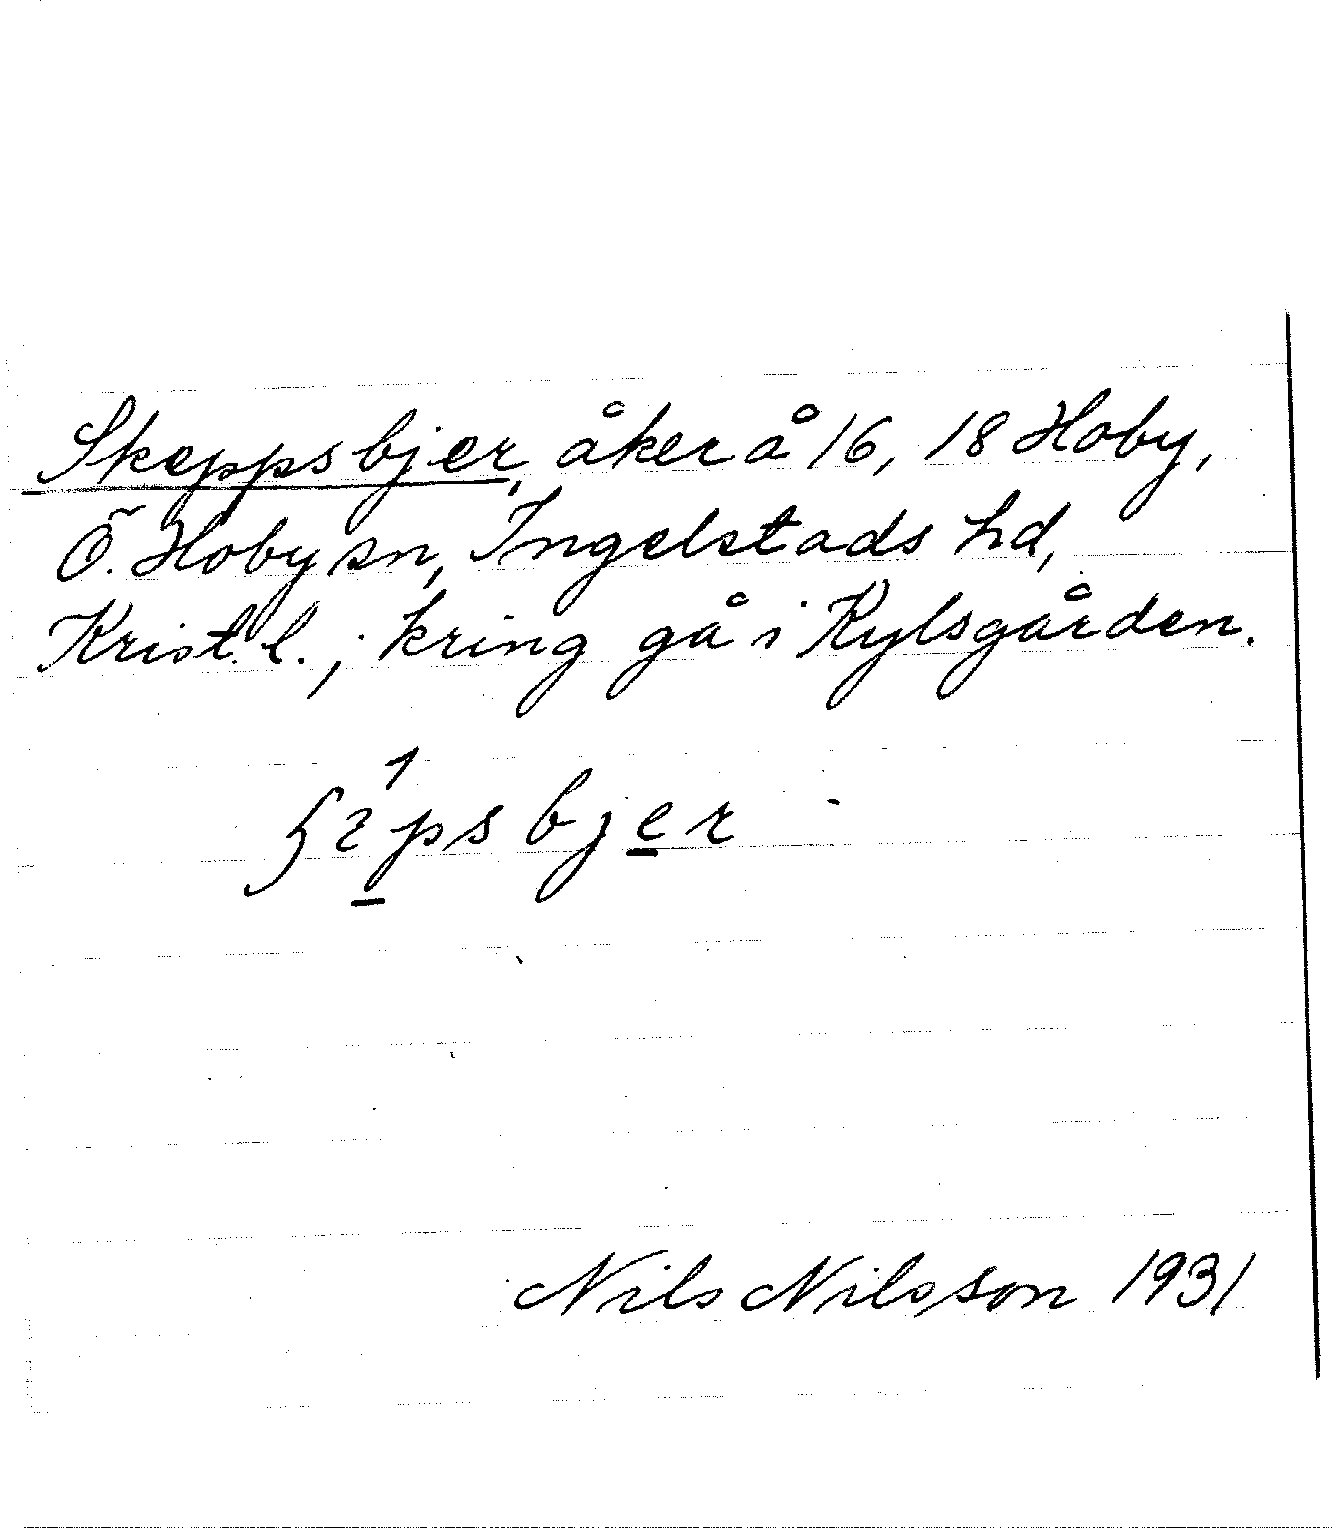 Skeppsbjer, åker å 16, 18 Hoby,
Ö. Hoby sn, Ingelstads hd,
Krist. l.; kring gå i Kylsgården.
Nils Nilsson 1931